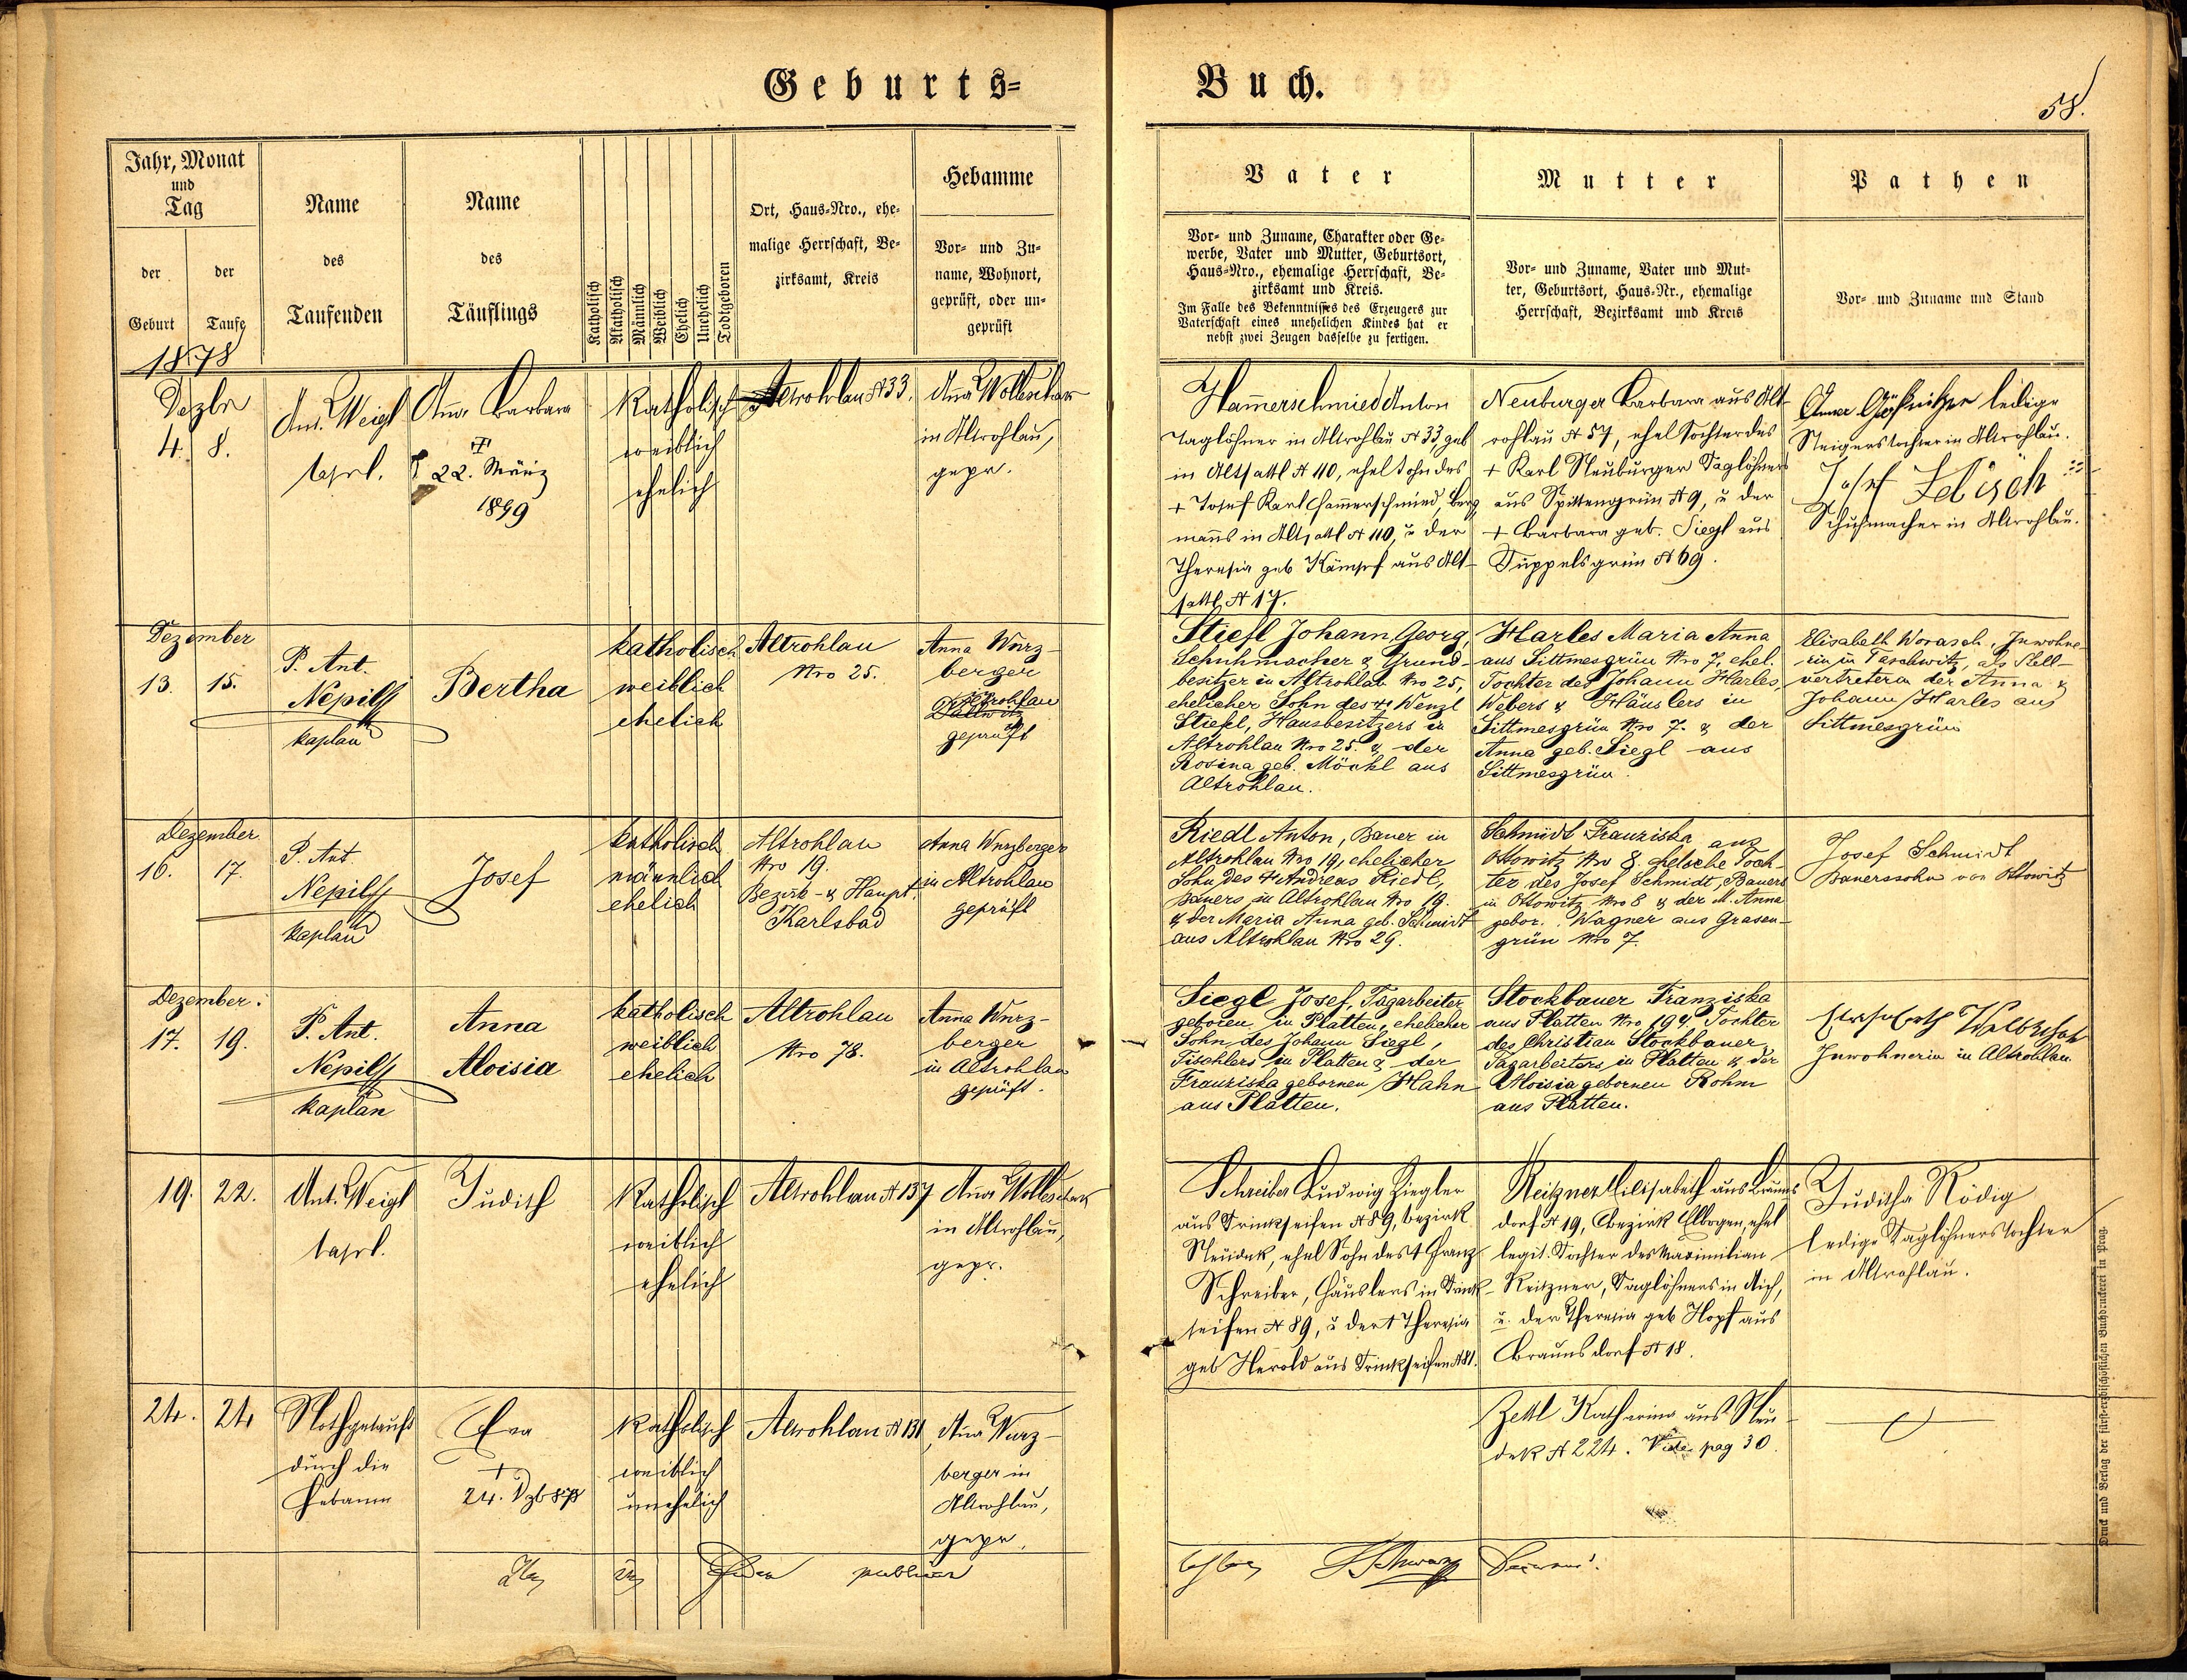 Geburts=
Buch.
58.
Jahr, Monat
und
Tag
der
Geburt
der
Taufe
Name
des
Taufenden
Name
des
Täuflings
Katholisch
Akatholisch
Männlich
Weiblich
Ehelich
Unehelich
Todtgeboren
Ort, Haus=Nro., ehe=
malige Herrschaft, Be=
zirksamt, Kreis
Hebamme
Vor= und Zu=
name, Wohnort,
geprüft, oder un=
geprüft
Vater
Vor= und Zuname, Charakter oder Ge=
werbe, Vater und Mutter, Geburtsort,
Haus=Nro., ehemalige Herrschaft, Be=
zirksamt und Kreis.
Im Falle des Bekenntnisses des Erzeugers zur
Vaterschaft eines unehelichen Kindes hat er
nebst zwei Zeugen dasselbe zu fertigen.
Mutter
Vor= und Zuname, Vater und Mut=
ter, Geburtsort, Haus=Nr., ehemalige
Herrschaft, Bezirksamt und Kreis
Pathen
Vor= und Zuname und Stand
1878
Dezbr
4. 8.
Ant. Weigl
Anna Barbara
22. März
1899
Katholisch
weiblich
ehelich
Altrohlau N 33.
Anna
in Altrohlau,
gepr.
Hammerschmied Anton
Taglöhner in Altrohlau N 33, geb
in Altsattl N 110, ehel Sohn des
+ Josef Karl Hammerschmied, Berg
manns in Altsattl N 110, u der
Theresia geb Kämpf aus Alt-
sattl N 17.
Neuburger Barbara aus Alt-
rohlau N 57, ehel Tochter des
+ Karl Neuburger Taglöhners
aus Spittengrün N 9, u der
+ Barbara geb. Siegl aus
Tüppelsgrün N 69.
Anna ledige
Steigerstochter in Altrohlau.
Josef
Schuhmacher in Altrohlau.
Dezember
13. 15.
P. Ant.
Nepilly
Kaplan
Bertha
katholisch
weiblich
ehelich
Altrohlau
Nro 25.
Anna Wurz-
berger
Altrohlau
Dallwitz
geprüft
Stiefl Johann Georg,
Schuhmacher & Grund-
besitzer in Altrohlau Nro 25,
ehelicher Sohn des + Wenzl
Stiefl, Hausbesitzers in
Altrohlau Nro 25. & der
Rosina geb. Möckl aus
Altrohlau.
Harles Maria Anna
aus Sittmesgrün Nro 7, ehel.
Tochter des Johann Harles,
Webers & Häuslers in
Sittmesgrün Nro 7. & der
Anna geb. Siegl aus
Sittmesgrün.
Elisabeth Worasch, Inwohne-
rin in Taschwitz, als Stell-
vertreterin der Anna &
Johann Harles aus
Sittmesgrün
Dezember
16. 17.
P. Ant.
Nepilly
Kaplan
Josef
katholisch
männlich
ehelich
Altrohlau
Nro 19.
Bezirk- & Haupt.
Karlsbad
Anna Wurzberger
in Altrohlau
geprüft
Riedl Anton, Bauer in
Altrohlau Nro 19, ehelicher
Sohn des + Andreas Riedl,
Bauers in Altrohlau Nro 19.
& der Maria Anna geb. Schmidt
aus Altrohlau Nro 29.
Schmidt Franziska aus
Ottowitz Nro 8. eheliche Toch-
ter des Josef Schmidt, Bauers
in Ottowitz Nro 8 & der M. Anna
gebor. Wagner aus Grasen-
grün Nro 7.
Josef Schmidt
Bauerssohn von Ottowitz
Dezember.
17. 19.
P. Ant.
Nepilly
Kaplan
Anna
Aloisia
katholisch
weiblich
ehelich
Altrohlau
Nro 78.
Anna Wurz-
berger
in Altrohlau
geprüft.
Siegl Josef, Tagarbeiter
geboren in Platten, ehelicher
Sohn des Johann Siegl,
Tischlers in Platten & der
Franziska gebornen Hahn
aus Platten.
Stockbauer Franziska
aus Platten Nro 194 Tochter
des Christian Stockbauer
Tagarbeiters in Platten & der
Aloisia gebornen Rohm
aus Platten.
Inwohnerin in Altrohlau.
19. 22.
Ant. Weigl
Judith
Katholisch
weiblich
ehelich
Altrohlau N 137
Anna
in Altrohlau,
gepr.
Schreiber Ludwig Ziegler
aus Trinkseifen N 89, Bezirk
Neudek, ehel Sohn des + Franz
Schreiber, Häuslers in Trink-
seifen N 89, u der + Theresia
geb Herold aus Trinkseifen N 81.
Reitzner Elisabeth aus Brauns
dorf N 19, Bezirk Elbogen, ehel
legit. Tochter des Maximilian
Reitzner, Taglöhners in Aich,
u. der Theresia geb Hopf aus
Braunsdorf N 18.
Juditha Rödig
ledige Taglöhnerstochter
in Altrohlau.
24. 24
Nothgetauft
durch die
Hebamm
Eva
+
24. Dzb 878
Katholisch
weiblich
unehelich
Altrohlau N 131
Anna Wurz-
berger in
Altrohlau,
gepr.
Zettl Katharina aus Neu-
dek N 224. Vide pag 30.
publica
Druck und Verlag der fürst=erzbischöflichen Buchdruckerei in Prag.